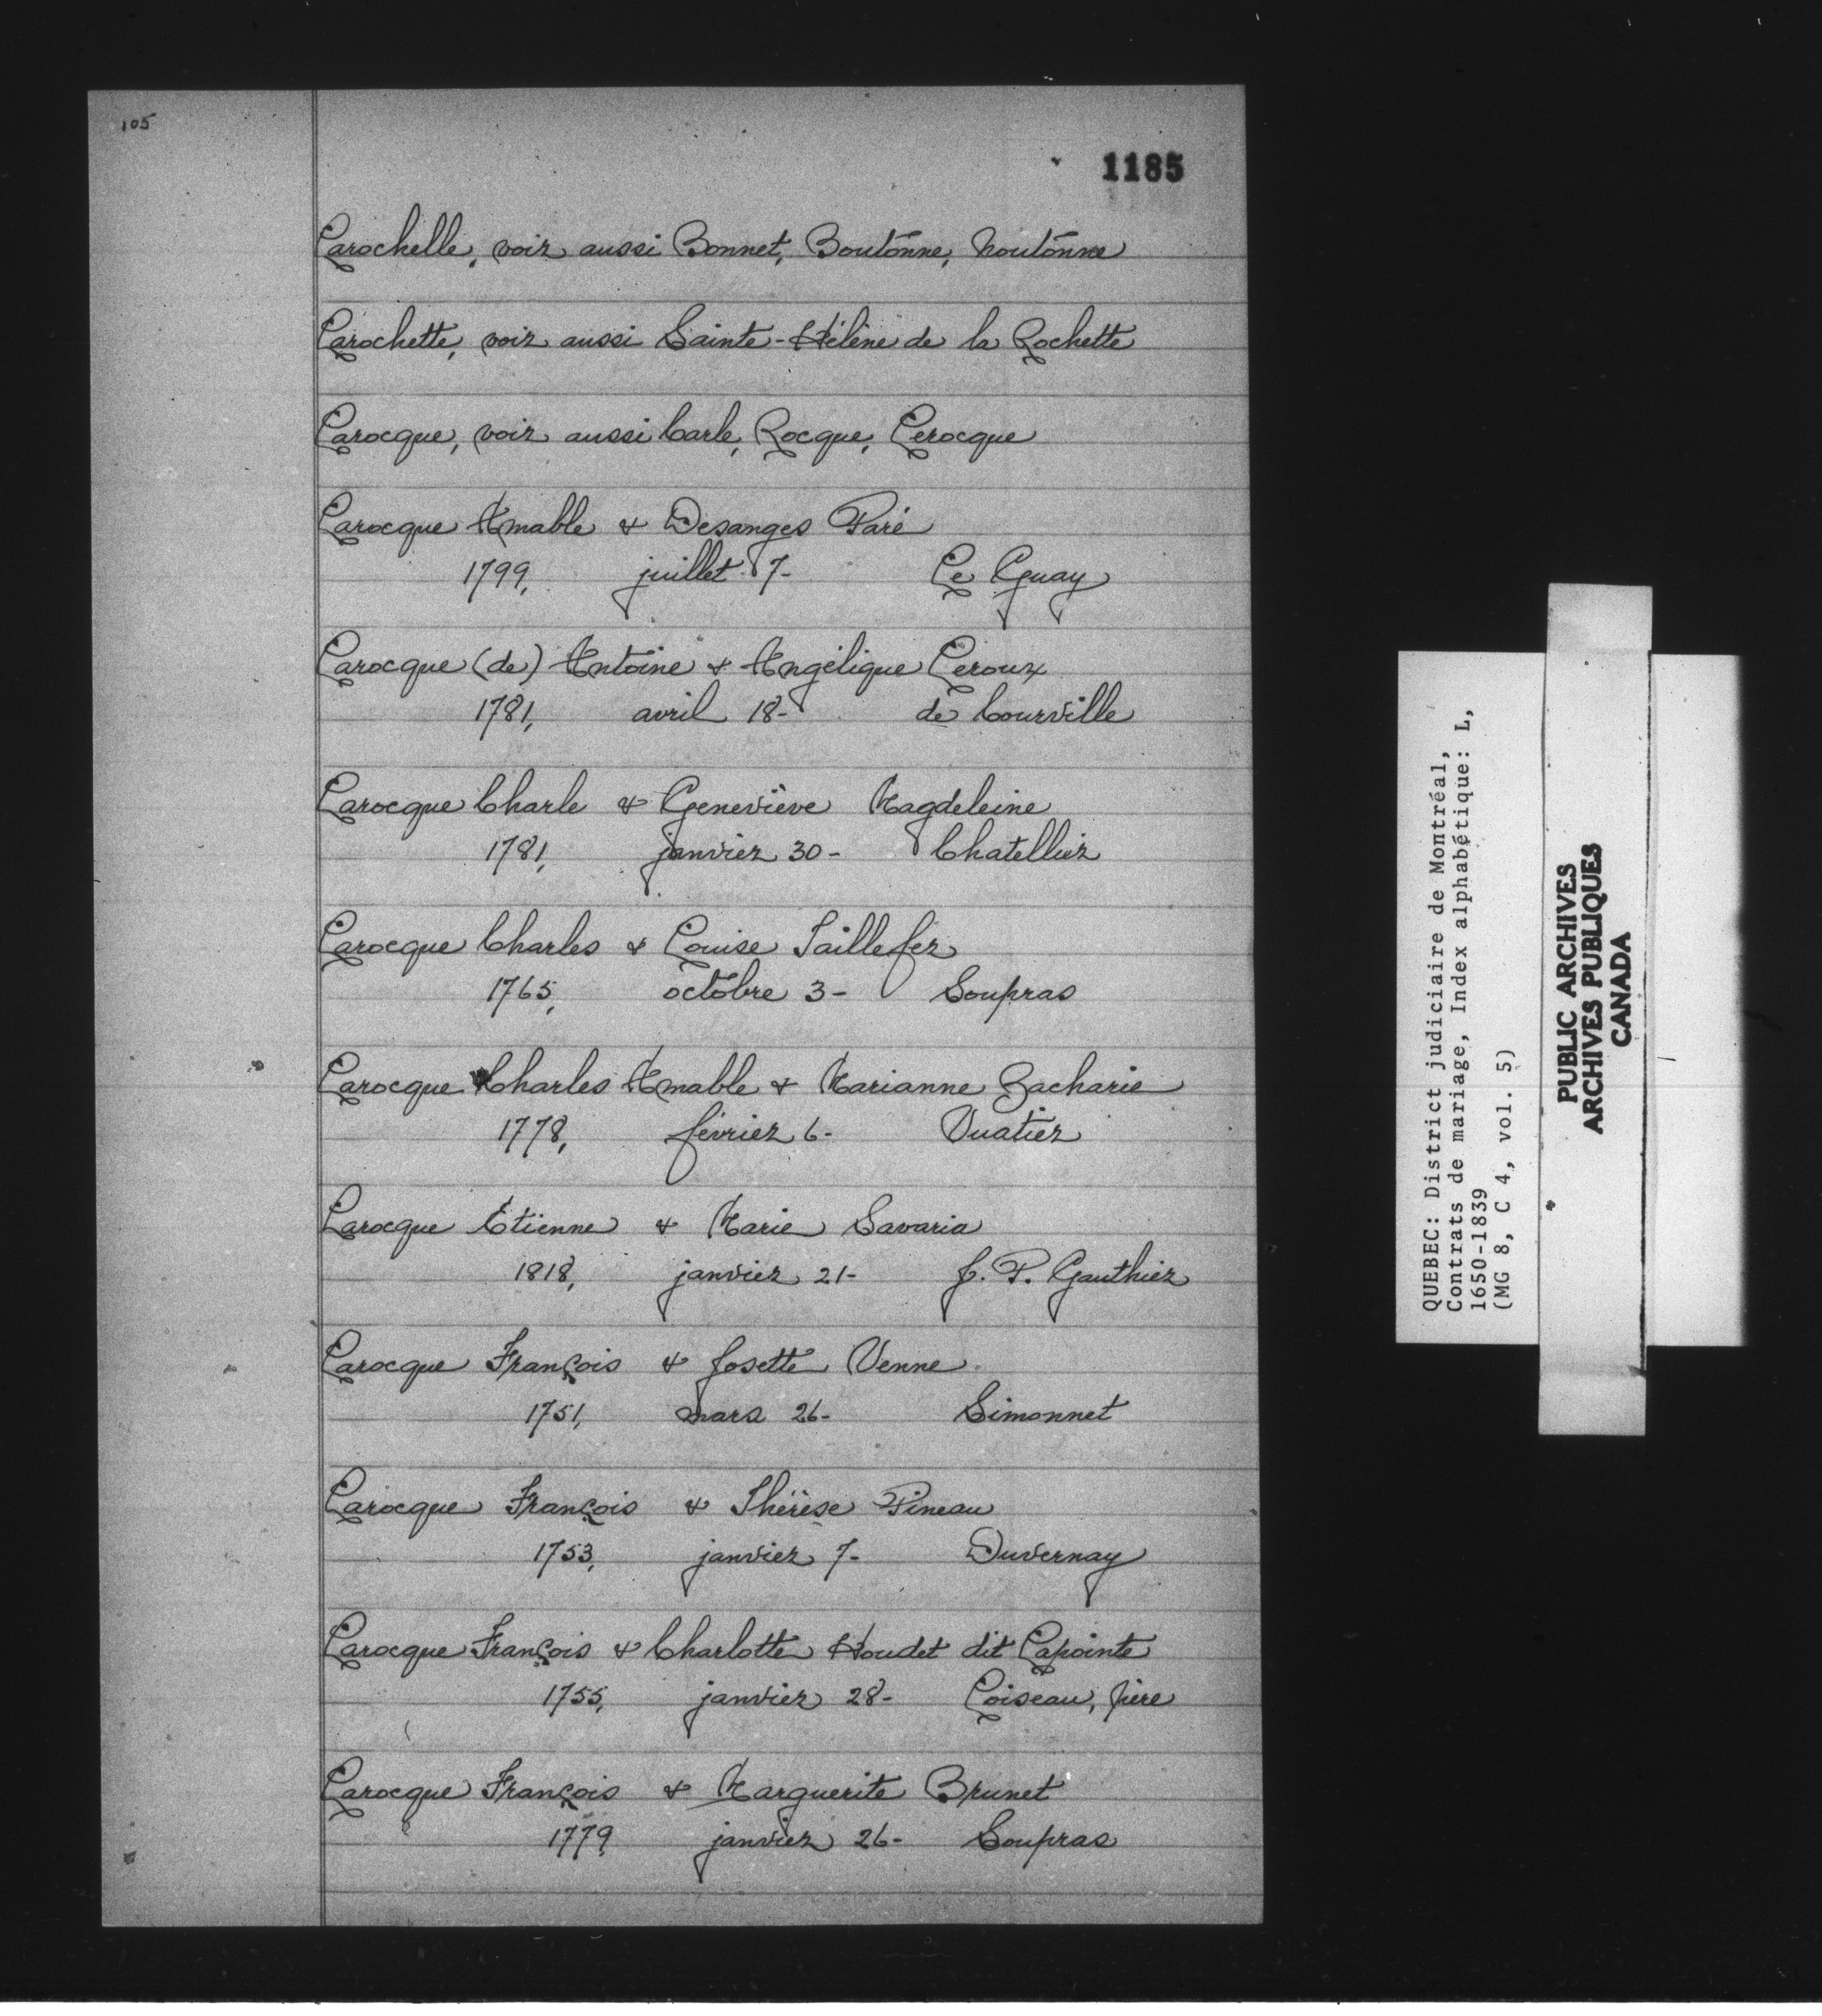 105
1185
Larochelle, voir aussi Bonnet, Boutonne, Noutonne
Larochette, voir aussi Sainte-Hélène de la Rochette
Larocque, voir aussi Carle, Rocque, Lerocque
Larocque Amable & Desanges Paré
1799, juillet 7- Le Guay
Larocque (de) Antoine & Angélique Leroux
1781, avril 18- de Courville
Larocque Charle & Geneviève Magdeleine
1781, janvier 30- Chatellier
Larocque Charles & Louise Taillefer
1765, octobre 3- Soupras
Larocque Charles Amable & Marianne Zacharie
1778, février 6- Vuatier
Larocque Etienne & Marie Savaria
1818, janvier 21- J. P. Gauthier
Larocque François & Josette Venne
1751, mars 26- Simonnet
Larocque François & Thérèse Pineau
1753, janvier 7- Duvernay
Larocque François & Charlotte Houdet dit Lapointe
1755, janvier 28- Loiseau, père
Larocque François & Marguerite Brunet
1779, janvier 26- Soupras
QUEBEC: District judiciaire de Montréal,
Contrats de mariage, Index alphabétique: L,
1650-1839
(MG 8, C 4, vol. 5)
PUBLIC ARCHIVES
ARCHIVES PUBLIQUES
CANADA